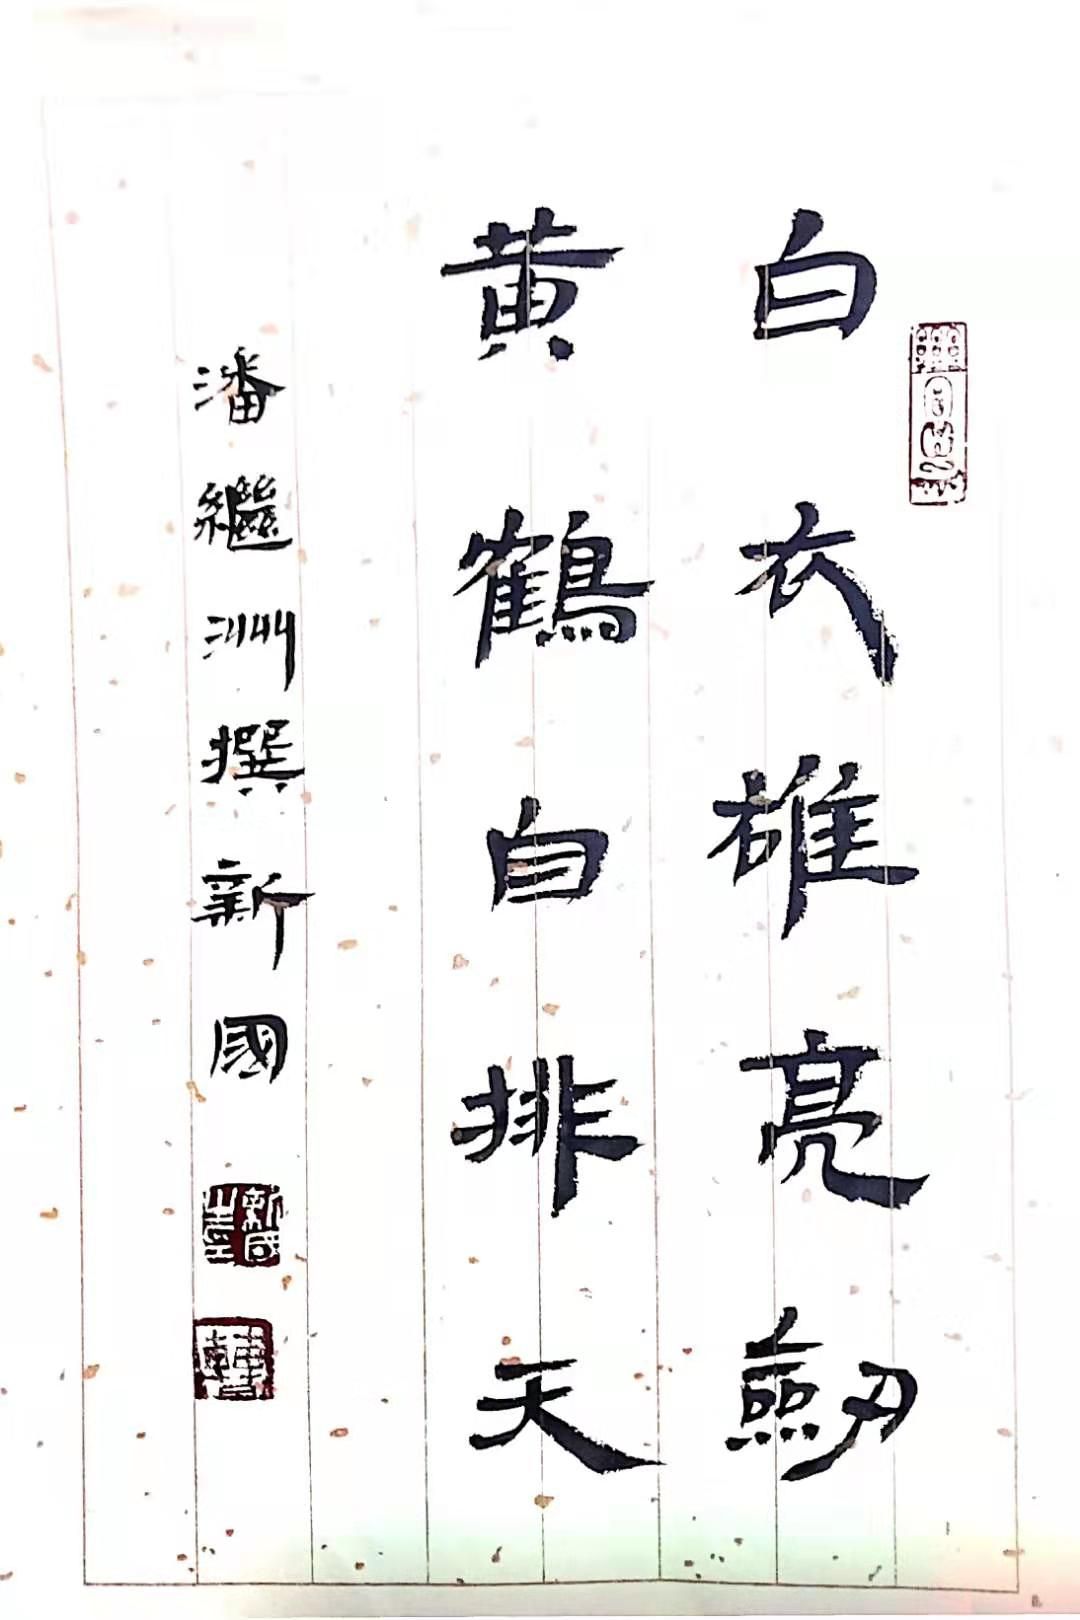 白衣雄亮劒
黄鶴自排天
潘繼洲撰新國